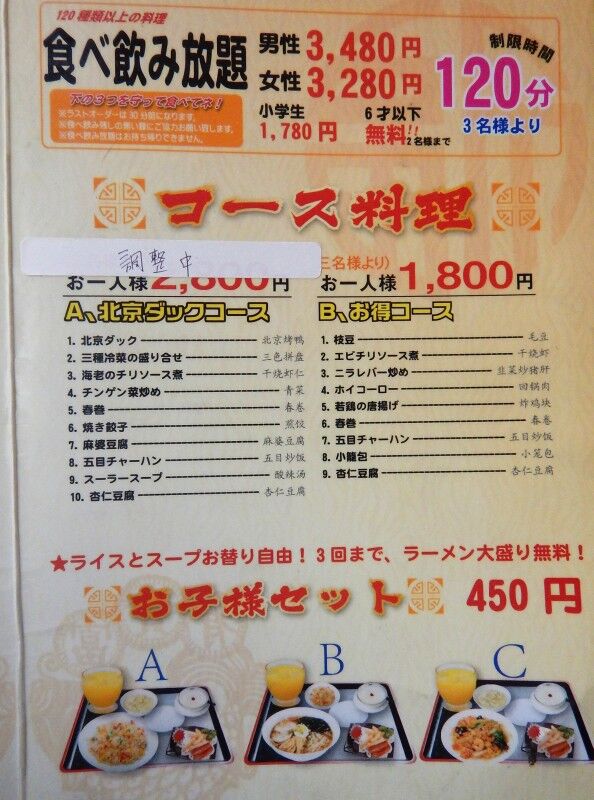 120種類以上の料理
食べ飲み放題
男性 3,480円
女性 3,280円
小学生 1,780円
6才以下 無料!! 2名様まで
制限時間
120分
3名様より
下の3つを守って食べてネ!
※ラストオーダーは30分前になります。
※食べ飲み残しの無い様にご協力お願い致します。
※食べ飲み放題はお持ち帰りできません。
コース料理
調整中
お一人様2,800円
三名様より)
お一人様1,800円
A、北京ダックコース
1. 北京ダック 北京烤鸭
2. 三種冷菜の盛り合せ 三色拼盘
3. 海老のチリソース煮 干烧虾仁
4. チンゲン菜炒め 青菜
5. 春巻 春卷
6. 焼き餃子 煎饺
7. 麻婆豆腐 麻婆豆腐
8. 五目チャーハン 五目炒饭
9. スーラースープ 酸辣汤
10. 杏仁豆腐 杏仁豆腐
B、お得コース
1. 枝豆 毛豆
2. エビチリソース煮 干烧虾
3. ニラレバー炒め 韭菜炒猪肝
4. ホイコーロー 回锅肉
5. 若鶏の唐揚げ 炸鸡块
6. 春巻 春卷
7. 五目チャーハン 五目炒饭
8. 小籠包 小笼包
9. 杏仁豆腐 杏仁豆腐
★ライスとスープお替り自由!3回まで、ラーメン大盛り無料!
お子様セット 450円
A B C